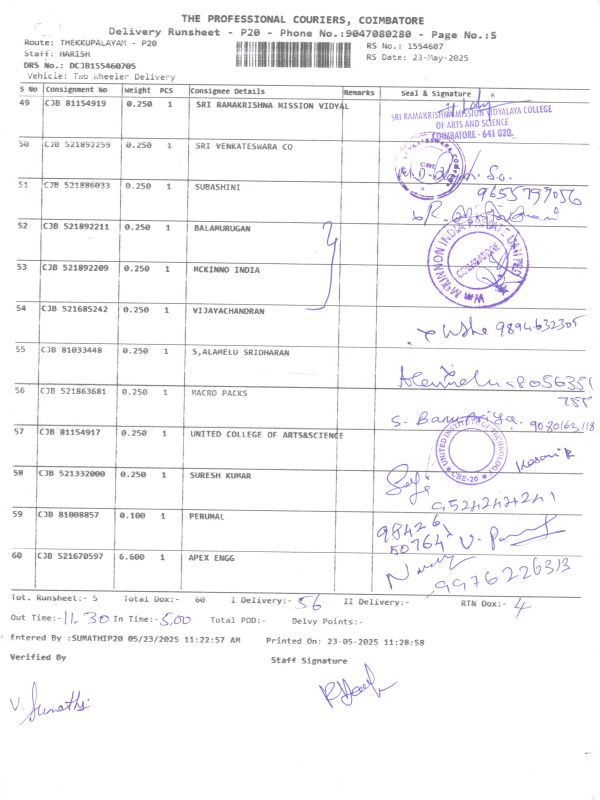 THE PROFESSIONAL COURIERS, COIMBATORE
Delivery Runsheet - P20 - Phone No.:9047080280 - Page No.:5
Route: THEKKUPALAYAM - P20
RS No.: 1554607
Staff: HARISH
RS Date: 23-May-2025
DRS No.: DCJB155460705
Vehicle: Two Wheeler Delivery
S No Consignment No Weight PCS Consignee Details Remarks Seal & Signature
49 CJB 81154919 0.250 1 SRI RAMAKRISHNA MISSION VIDYAL
SRI RAMAKRISHNA MISSION VIDYALAYA COLLEGE
OF ARTS AND SCIENCE
COIMBATORE - 641 020.
50 CJB 521892259 0.250 1 SRI VENKATESWARA CO
CBE
51 CJB 521886033 0.250 1 SUBASHINI
9655799056
52 CJB 521892211 0.250 1 BALAMURUGAN
53 CJB 521892209 0.250 1 MCKINNO INDIA
McKINNON INDIA PRIVATE LIMITED
COIMBATORE
54 CJB 521685242 0.250 1 VIJAYACHANDRAN
9894632305
55 CJB 81033448 0.250 1 S,ALAMELU SRIDHARAN
Alamelu 8056351
788
56 CJB 521863681 0.250 1 MACRO PACKS
S. Banupriya. 9080163118
57 CJB 81154917 0.250 1 UNITED COLLEGE OF ARTS&SCIENCE
UNITED INSTITUTE OF TECHNOLOGY
CBE-20
58 CJB 521332000 0.250 1 SURESH KUMAR
9524242241
59 CJB 81008857 0.100 1 PERUMAL
98426
50764
60 CJB 521670597 6.600 1 APEX ENGG
9976226313
Tot. Runsheet:- 5 Total Dox:- 60 I Delivery:- 56 II Delivery:- RTN Dox:- 4
Out Time:- 11.30 In Time:- 5.00 Total POD:- Delvy Points:-
Entered By :SUMATHIP20 05/23/2025 11:22:57 AM Printed On: 23-05-2025 11:28:58
Verified By
Staff Signature
V. Sumathi